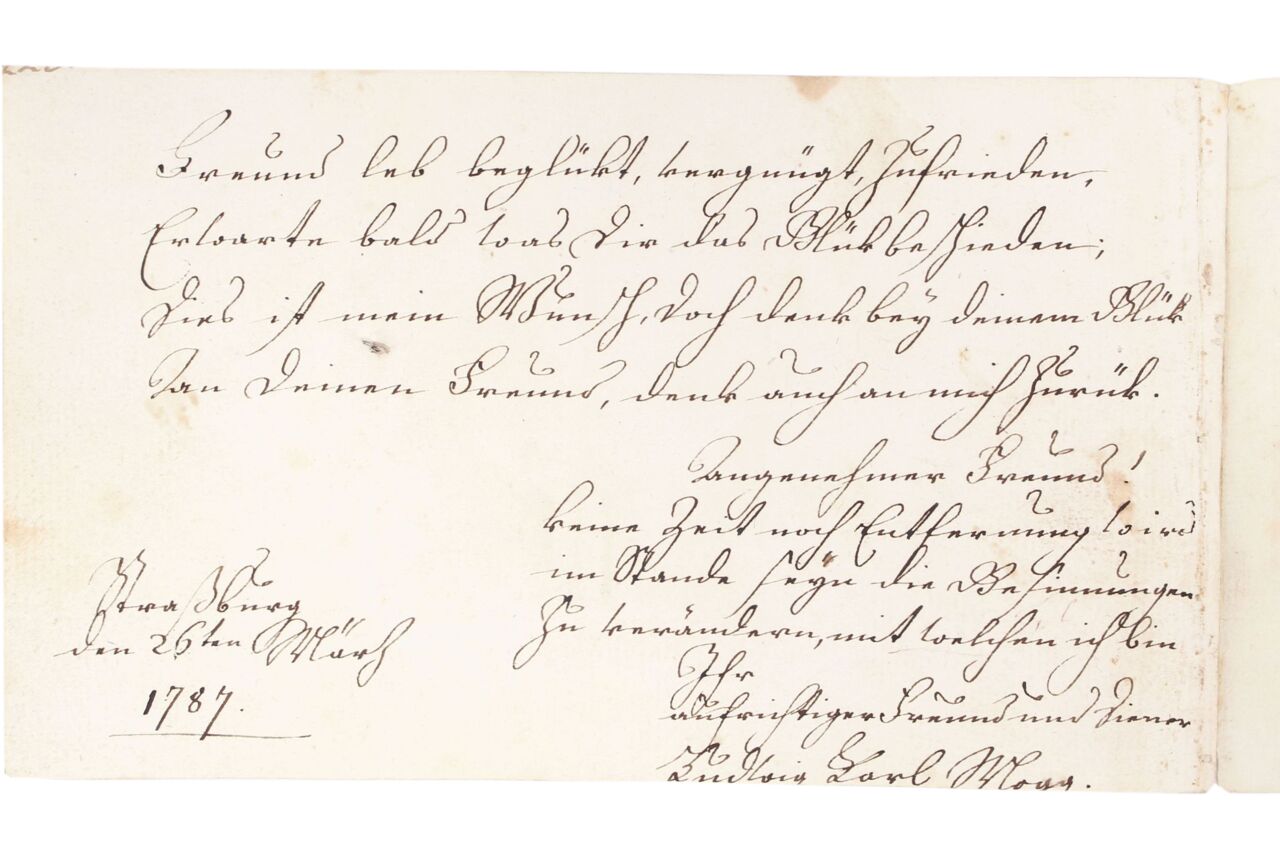 Freund leb beglükt, vergnügt, zufrieden,
Erwarte bald was Dir das Glük beschieden;
Dies ist mein Wunsch, doch denk bey deinem Glük
An deinen Freund, denk auch an mich zurük.
Angenehmer Freund!
keine Zeit noch Entfernung wird
im Stande seyn die Gesinnungen
zu verändern, mit welchen ich bin
Ihr
aufrichtiger Freund und Diener
Ludwig Karl Mogg.
Straßburg
den 26ten Märtz
1787.